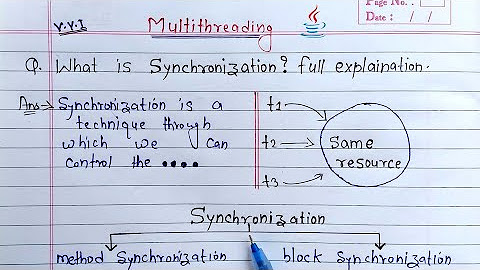 V.V.I
Multithreading
Page No. :
Date : / /
Q. What is Synchronization? full explaination.
Ans → Synchronization is a
technique through
which we can
control the ....
t1
t2
t3
Same
resource
Synchronization
method Synchronization
block Synchronization